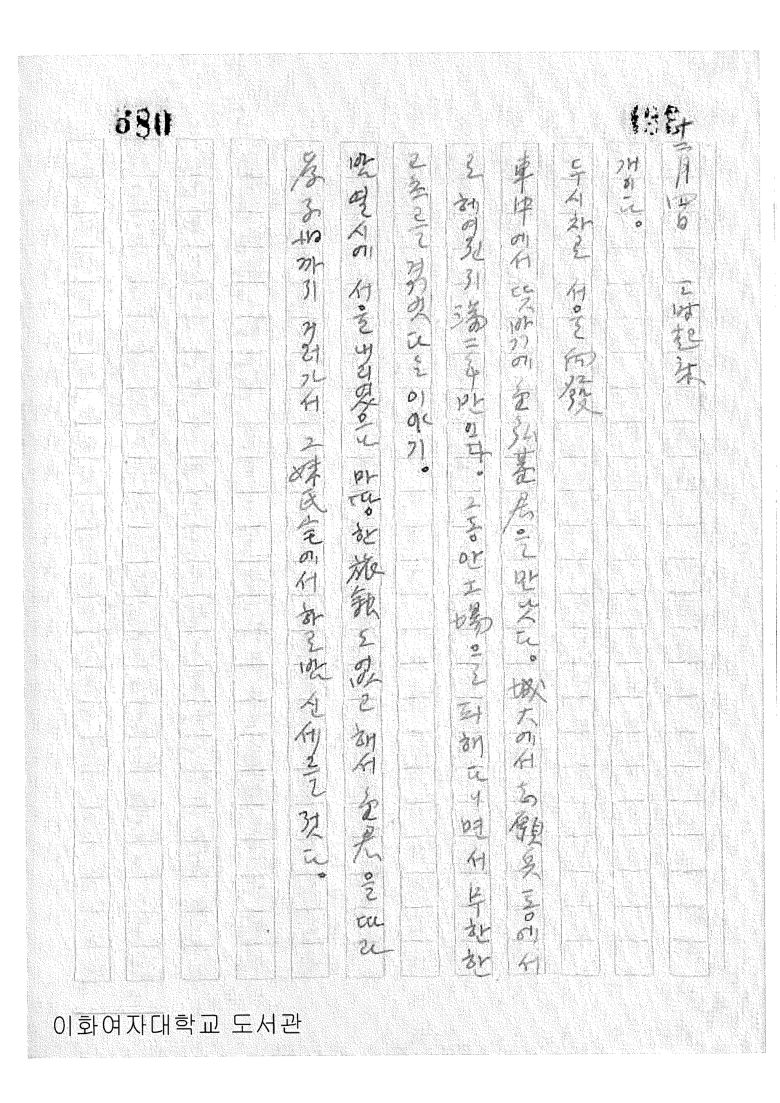 680
十二月四日 起床
개이다。
두시차로 서울 向發
車中에서 뜻바끼에 金弘基君을 만낫다。城大에서 志願兵 통에 서
로 헤여진 뒤 滿二年만이다。그동안 工場으로 피해 다니면서 무한한
고초를 격것다는 이야기。
밤 열시에 서울 내리였으나 마땅한 旅館도 없고 해서 金君을 따라
孝子町까지 거러가서 그 妹氏宅에서 하로밤 신세를 젓다。
이화여자대학교 도서관